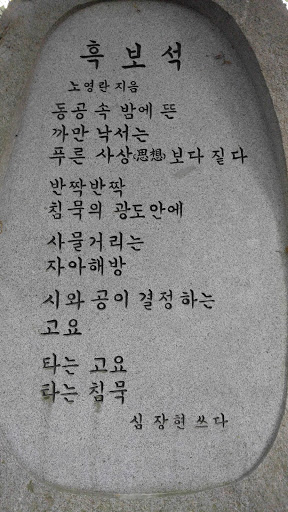 흑보석
노영란 지음
동공 속 밤에 뜬
까만 낙서는
푸른 사상(思想)보다 질다
반짝반짝
침묵의 광도안에
사물거리는
자아해방
시와 공이 결정하는
고요
타는 고요
타는 침묵
심장현 쓰다